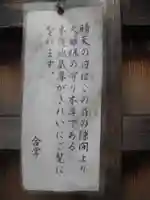 晴天の日はこの扉の隙間より
大日様の守り本尊である
本尊地蔵尊がきれいにご覧に
なれます。
合掌